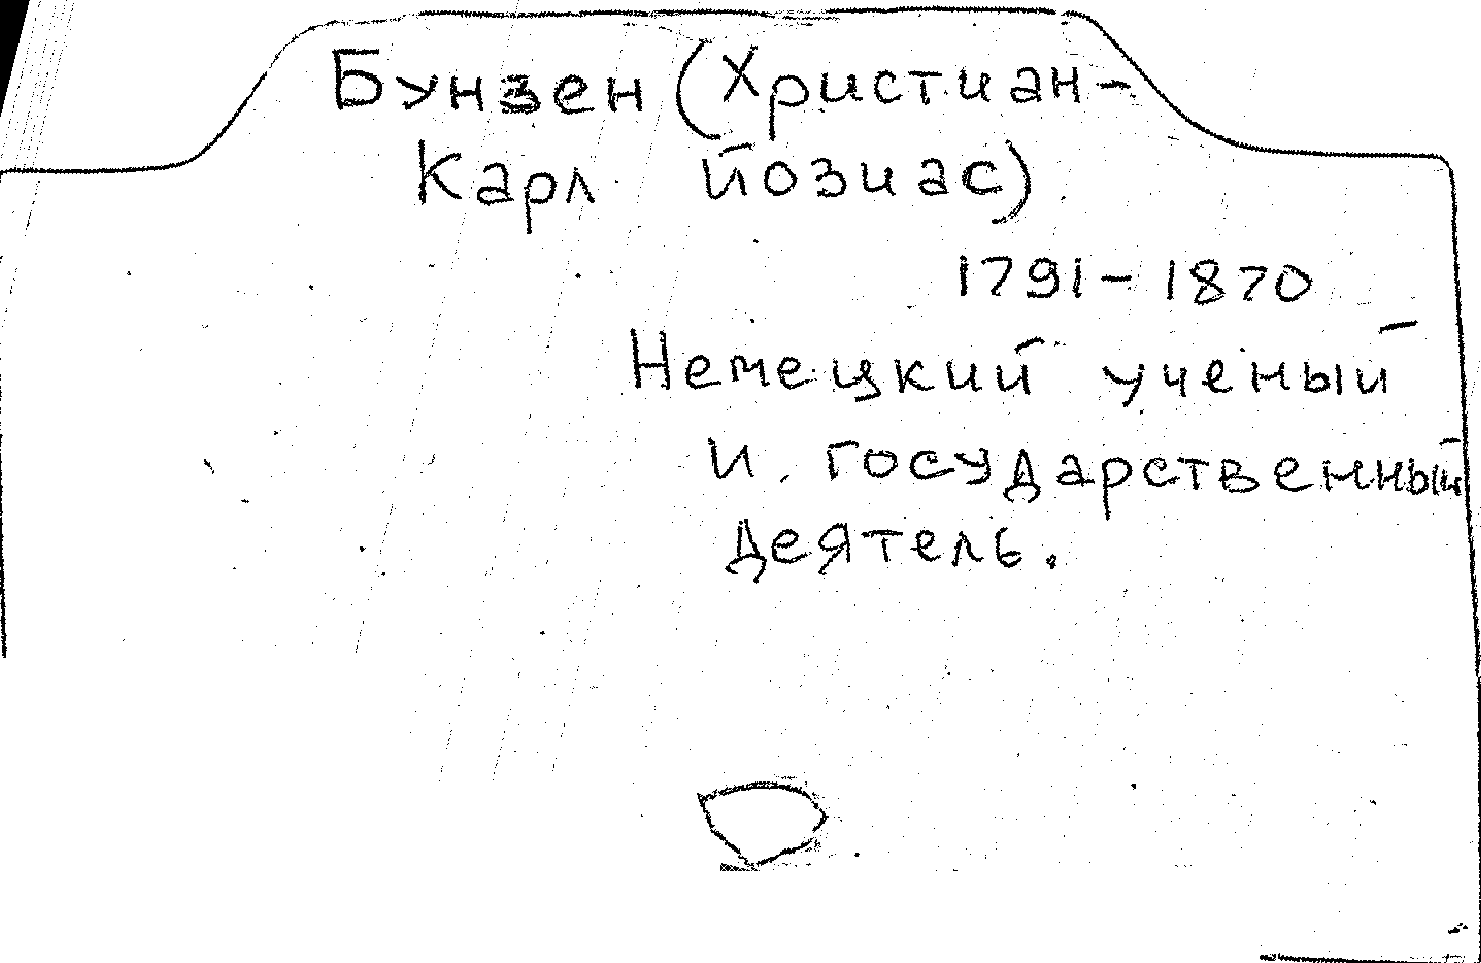 Бунзен (Христиан-
Карл Йозиас)
1791-1870
Немецкий ученый
и государственный
деятель.